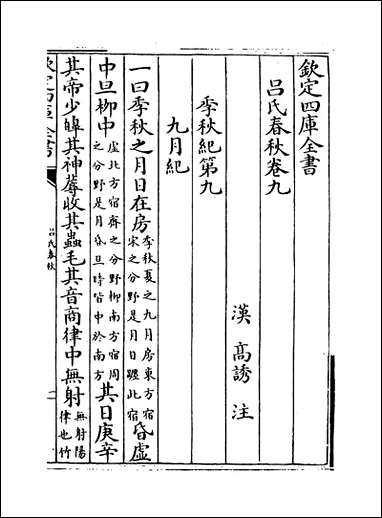 欽定四庫全書
呂氏春秋卷九
漢 高誘 注
季秋紀第九
九月紀
一曰季秋之月日在房季秋夏之九月房東方宿宋之分野是月日躔此宿昏虛
中旦柳中虛北方宿齊之分野柳南方宿周之分野是月昏旦時皆中於南方其日庚辛
其帝少皞其神蓐收其蟲毛其音商律中無射無射陽律也竹
呂氏春秋